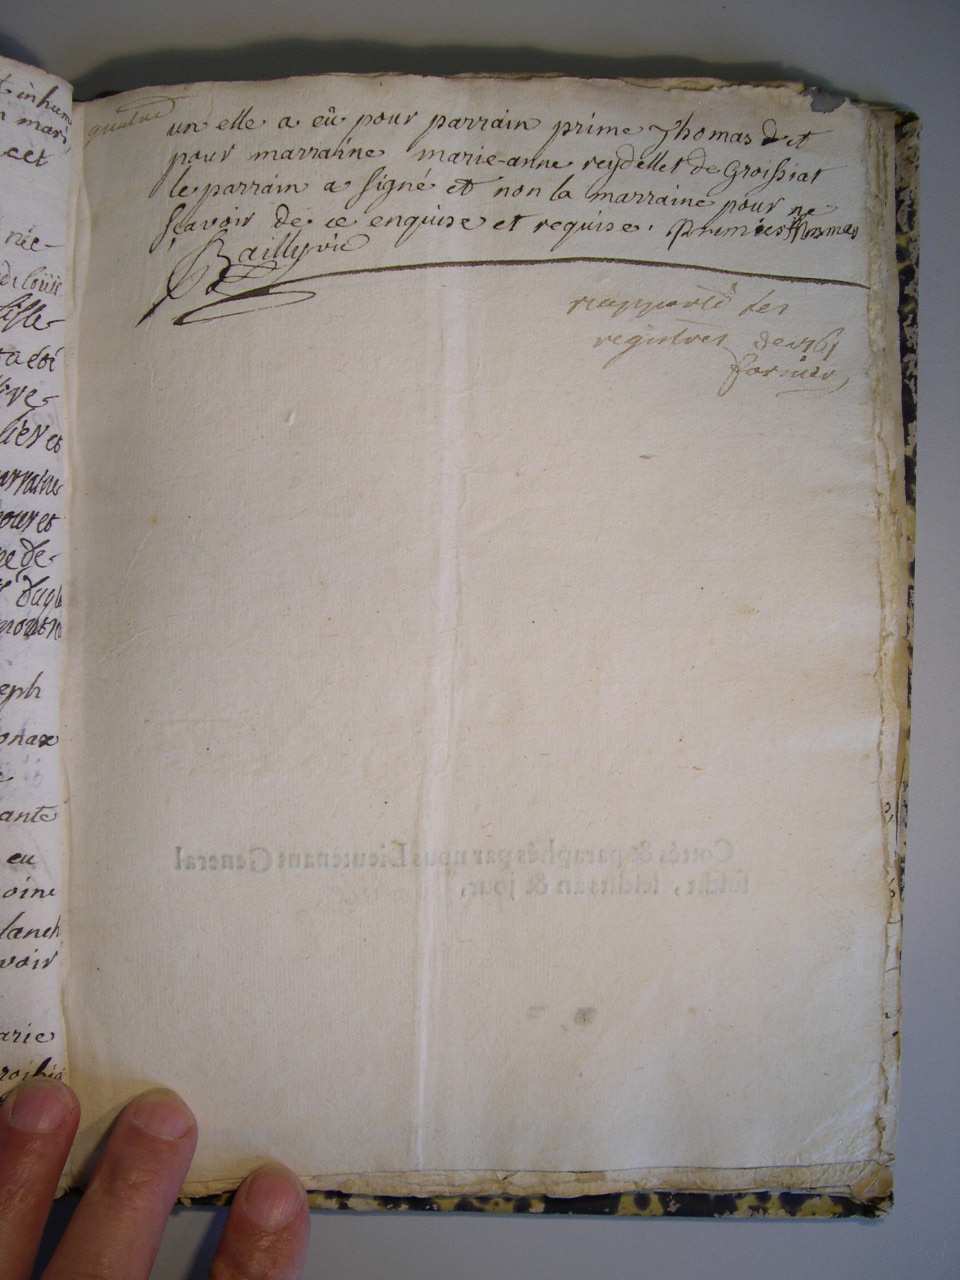 t inhum
n mari
cet
née
de loüise
a été
lier et
marraine
pour et
ne de
eph
onax
ante
eu
oine
lanch
voir
arie
quatre
un elle a eû pour parrain prime Thomas d et
pour marraine marie-anne reydellet de Groissiat
le parrain a signé et non la marraine pour ne
scavoir de ce enquise et requise. Prime Thomas
Bailly vic
rapporté des
registres de 1761
fornier
Cottés & paraphés par nous Lieutenant General
susdit, lesdits an & jour,